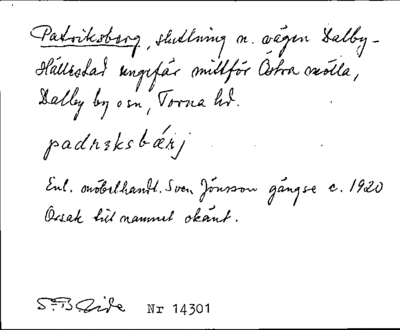 Patriksberg, sluttning n. vägen Dalby-
Hällestad ungefär mittför Östra mölla,
Dalby by o sn, Torna hd.
padrɪksbærj
Enl. möbelhandl. Sven Jönsson gängse c. 1920
Orsak till namnet okänt.
Nr 14301